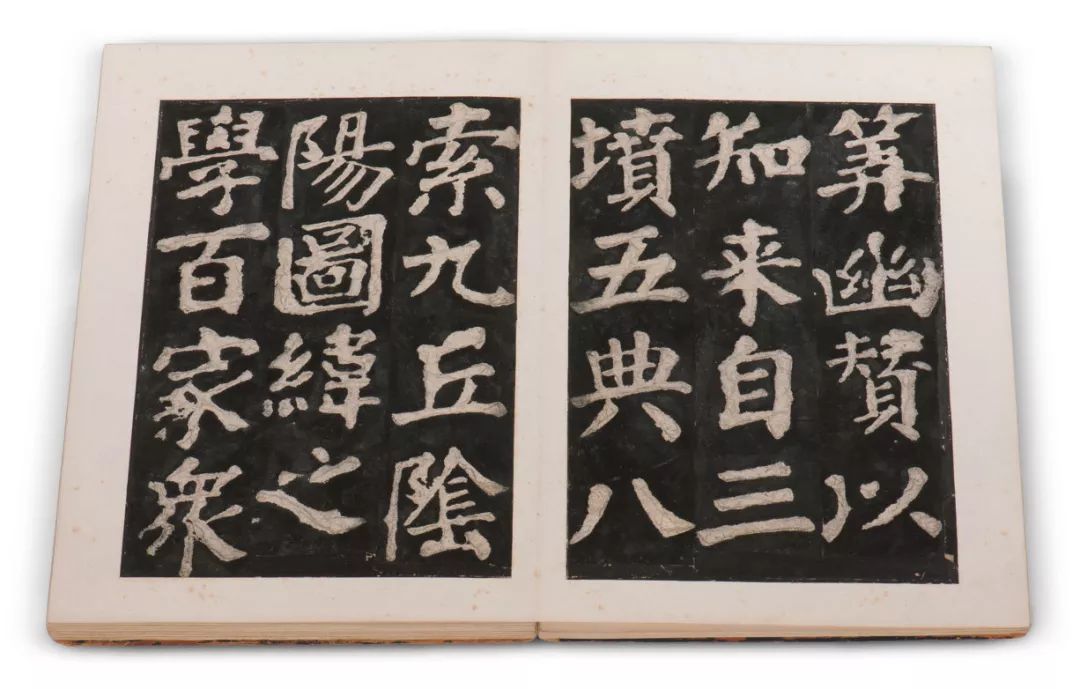 筭幽贊以
知来自三
墳五典八
索九丘陰
陽圖緯之
學百家衆